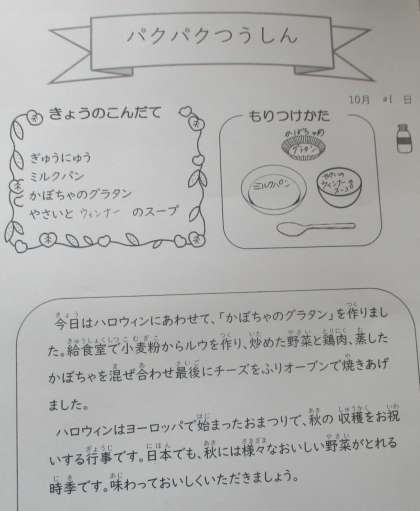 パクパクつうしん
10月 日
きょうのこんだて
ぎゅうにゅう
ミルクパン
かぼちゃのグラタン
やさいと ウィンナー のスープ
もりつけかた
かぼちゃの
グラタン
ミルクパン
やさいと
ウィンナーの
スープ
今日はハロウィンにあわせて、「かぼちゃのグラタン」を作りまし
た。給食室で小麦粉からルウを作り、炒めた野菜と鶏肉、蒸した
かぼちゃを混ぜ合わせ最後にチーズをふりオーブンで焼きあげ
ました。
ハロウィンはヨーロッパで始まったおまつりで、秋の収穫をお祝
いする行事です。日本でも、秋には様々なおいしい野菜がとれる
時季です。味わっておいしくいただきましょう。